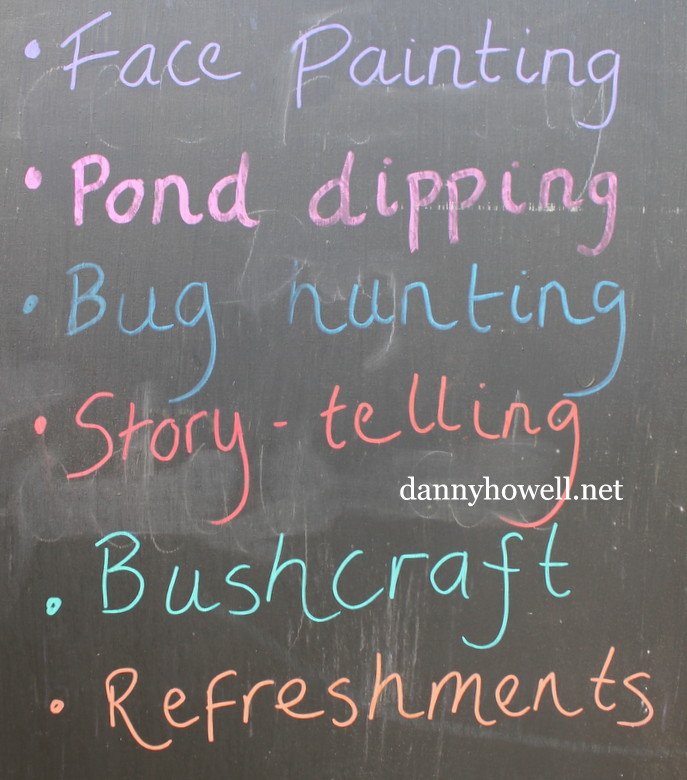 • Face Painting
• Pond dipping
• Bug hunting
• Story-telling
dannyhowell.net
• Bushcraft
• Refreshments